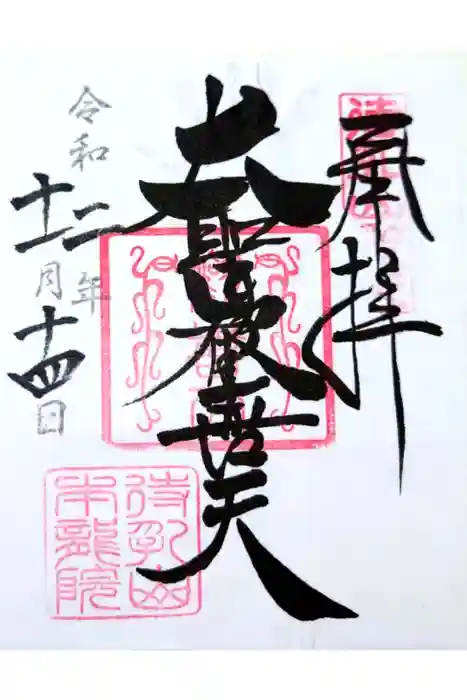 奉拝
大聖歓喜天
令和二年
十一月十四日
待乳山
本龍院